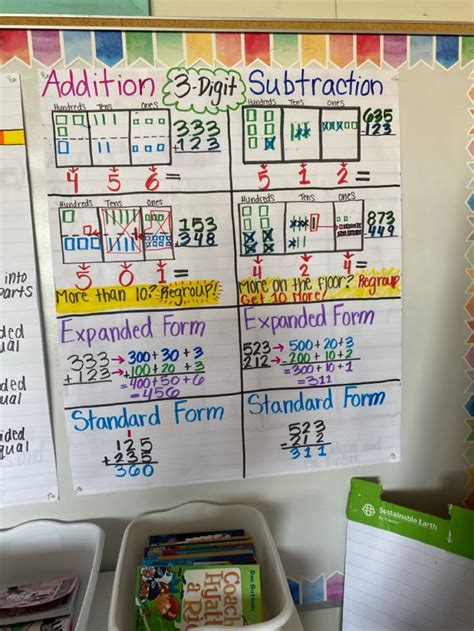 Addition 3-Digit Subtraction
Hundreds Tens Ones
333
123
4 5 6 =
Hundreds Tens Ones
635
-123
5 1 2 =
Hundreds Tens Ones
153
348
5 0 1 =
More than 10? Regroup!
Hundreds Tens Ones
873
-449
4 2 4 =
More on the floor? Regroup
Get 10 More!
Expanded Form
333 → 300 + 30 + 3
+123 → 100 + 20 + 3
= 400 + 50 + 6
= 456
Expanded Form
523 → 500 + 20 + 3
212 → - 200 + 10 + 2
= 300 + 10 + 1
= 311
Standard Form
1
125
+235
360
Standard Form
523
- 212
311
into
parts
ded
ual
ded
ual
ided
qual
Sustainable Earth
Dan Gutman
Coach
Hyatt